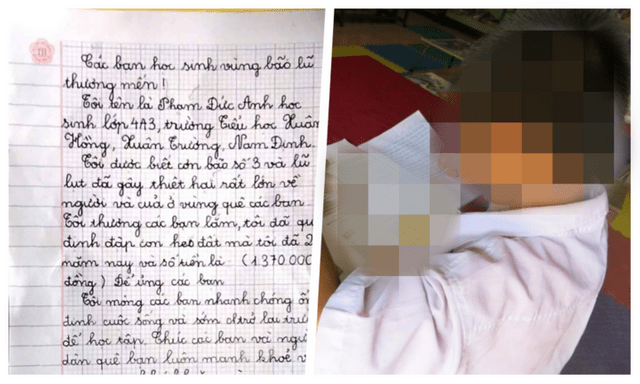 Các bạn học sinh vùng bão lũ
thương mến!
Tôi tên là Phạm Đức Anh học
sinh lớp 4A3, trường Tiểu học Xuân
Hồng, Xuân Trường, Nam Định.
Tôi được biết cơn bão số 3 và lũ
lụt đã gây thiệt hại rất lớn về
người và của ở vùng quê các bạn
Tôi thương các bạn lắm, tôi đã qu
định đập con heo đất mà tôi đã 2
năm nay và số tiền là (1.370.000
đồng) Để ủng các bạn
Tôi mong các bạn nhanh chóng ổn
định cuộc sống và sớm trở lại trư
để học tập. Chúc các bạn và ngư
dân quê bạn luôn mạnh khoẻ v